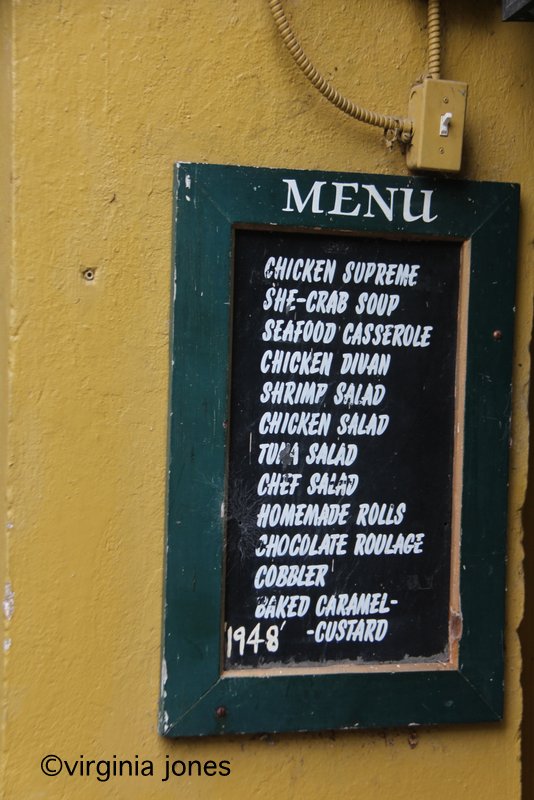 MENU
CHICKEN SUPREME
SHE-CRAB SOUP
SEAFOOD CASSEROLE
CHICKEN DIVAN
SHRIMP SALAD
CHICKEN SALAD
TUNA SALAD
CHEF SALAD
HOMEMADE ROLLS
CHOCOLATE ROULAGE
COBBLER
BAKED CARAMEL-
-CUSTARD
'1948'
©virginia jones